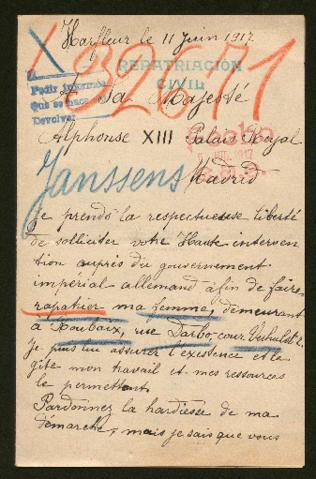 Harfleur le 11 Juin 1917.
482671
REPATRIACIÓN
CIVIL
A Sa Majesté
Pedir informes
Que se hace
Devolver
Alphonse XIII Palais Royal
1917
Janssens Madrid
Je prends la respectueuse liberté
de solliciter votre Haute interven
tion auprès du gouvernement
impérial allemand afin de faire
rapatrier ma femme, demeurant
à Roubaix, rue Darbo, cour
Je puis lui assurer l'existence et le
gîte mon travail et mes ressources
le permettent
Pardonnez la hardiesse de ma
démarche, mais je sais que vous